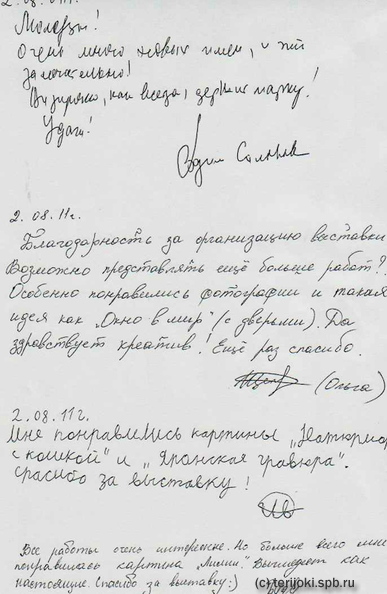 Молодцы!
Очень много новых имен, и это
замечательно!
как всегда, держит марку!
Удачи!
Вадим
2.08.11г.
Благодарность за организацию выставки
Возможно представлять ещё больше работ?
Особенно понравились фотографии и такая
идея как „Окно в мир" (с дверьми). Да
здравствует креатив! Ещё раз спасибо.
(Ольга)
2.08.11г.
Мне понравились картины „Натюрмор
с кошкой" и „Японская гравюра".
Спасибо за выставку!
Все работы очень интересные. Но больше всего мне
понравилась картина „Лилии". Выглядят как
настоящие. Спасибо за выставку:)
(c) terijoki.spb.ru